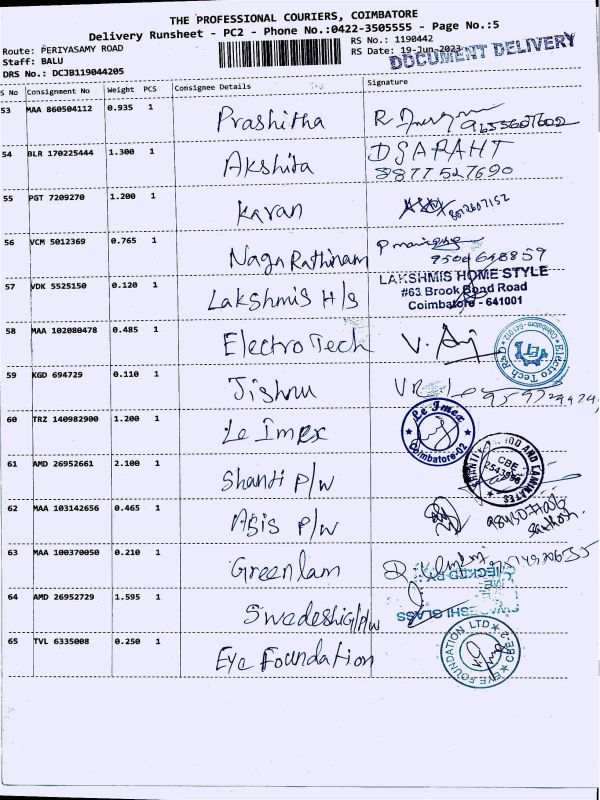 THE PROFESSIONAL COURIERS, COIMBATORE
Delivery Runsheet - PC2 - Phone No.:0422-3505555 - Page No.:5
Route: PERIYASAMY ROAD
Staff: BALU
DRS No.: DCJB119044205
RS No.: 1190442
RS Date: 19-Jun-2023
DOCUMENT DELIVERY
S No Consignment No Weight PCS Consignee Details Signature
53 MAA 860504112 0.935 1 Prashitha
54 BLR 170225444 1.300 1 Akshita DSARAHT
8877527690
55 PGT 7209270 1.200 1 Karan
56 VCM 5012369 0.765 1 Naga Rathinam
57 VDK 5525150 0.120 1 Lakshmis H/s LAKSHMIS HOME STYLE
#63 Brook Bond Road
Coimbatore - 641001
58 MAA 102080478 0.485 1 Electro Tech V.
59 KGD 694729 0.110 1 Jishnu
60 TRZ 140982900 1.200 1 Le Imex Le Imex
Coimbatore-02
61 AMD 26952661 2.100 1 Shanti P/w
CBE
2543996
62 MAA 103142656 0.465 1 Asis P/w
Santhosh
63 MAA 100370050 0.210 1 Greenlam
CHECKED BY
64 AMD 26952729 1.595 1 Swadeshi G/Pw
65 TVL 6335008 0.250 1 Eye Foundation EYE FOUNDATION LTD ★ CBE-2 ★